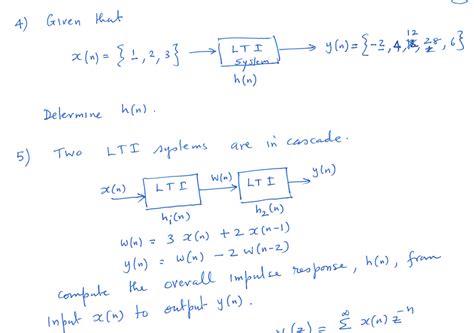 4) Given that
x(n) = {1, 2, 3} → LTI system → y(n) = {-2, 4, 28, 6}
h(n)
Determine h(n).
5) Two LTI systems are in cascade.
x(n) → LTI → w(n) → LTI → y(n)
h₁(n) h₂(n)
w(n) = 3 x(n) + 2 x(n-1)
y(n) = w(n) - 2 w(n-2)
compute the overall impulse response, h(n), from
input x(n) to output y(n).
∞
Σ x(n) z⁻ⁿ